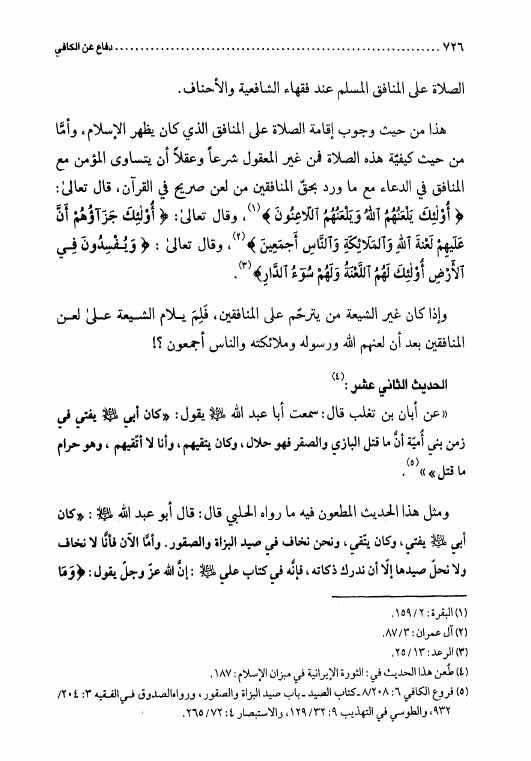 ٧٢٦ ........................................................................ دفاع عن الكافي
الصلاة على المنافق المسلم عند فقهاء الشافعية والأحناف.
هذا من حيث وجوب إقامة الصلاة على المنافق الذي كان يظهر الإسلام، وأمَّا
من حيث كيفيّة هذه الصلاة فمن غير المعقول شرعاً وعقلاً أن يتساوى المؤمن مع
المنافق في الدعاء مع ما ورد بحقّ المنافقين من لعن صريح في القرآن، قال تعالىٰ:
﴿ أُوْلَئِكَ يَلْعَنُهُمُ اللهُ وَيَلْعَنُهُمُ اللاَّعِنُونَ ﴾(١)، وقال تعالىٰ: ﴿ أُوْلَئِكَ جَزَآؤُهُمْ أَنَّ
عَلَيهِمْ لَعْنَةَ اللهِ وَالمَلَائِكَةِ وَالنَّاسِ أَجمَعِينَ ﴾(٢)، وقال تعالىٰ : ﴿ وَيُفْسِدُونَ فِي
الأَرْضِ أُوْلَئِكَ لَهُمُ اللَّعْنَةُ وَلَهُمْ سُوٓءُ الدَّارِ﴾(٣).
وإذا كان غير الشيعة من يترحّم على المنافقين، فَلِمَ يـلام الشـيعة عـلىٰ لعـن
المنافقين بعد أن لعنهم الله ورسوله وملائكته والناس أجمعون ؟!
الحديث الثاني عشر :(٤)
«عن أبان بن تغلب قال: سمعت أبا عبد الله ﷺ يقول: «كان أبي ﷺ يفتي في
زمن بني أُميّة أنَّ ما قتل البازي والصقر فهو حلال، وكان يتقيهم، وأنا لا أتّقيهم ، وهو حرام
ما قتل» »(٥).
ومثل هذا الحديث المطعون فيه ما رواه الحلبي قال: قال أبو عبد الله ﷺ : «كان
أبي ﷺ يفتي، وكان يتّقي، ونحن نخاف في صيد البزاة والصقور. وأمَّا الآن فأنَّا لا نخاف
ولا نحلّ صيدها إلّا أن ندرك ذكاته، فإنَّه في كتاب علي ﷺ : إنَّ الله عزّ وجلّ يقول: ﴿وَمَا
(١) البقرة: ١٥٩/٢.
(٢) آل عمران: ٨٧/٣.
(٣) الرعد: ٢٥/١٣.
(٤) طُعن هذا الحديث في: الثورة الإيرانية في ميزان الإسلام: ١٨٧.
(٥) فروع الكافي ٦: ٨/٢٠٨ـ كتاب الصيد ـ باب صيد البزاة والصقور، ورواه الصدوق في الفـقيه ٣: ٢٠٤/
٩٣٢، والطوسي في التهذيب ٩: ١٢٩/٣٢، والاستبصار ٤: ٢٦٥/٧٢.